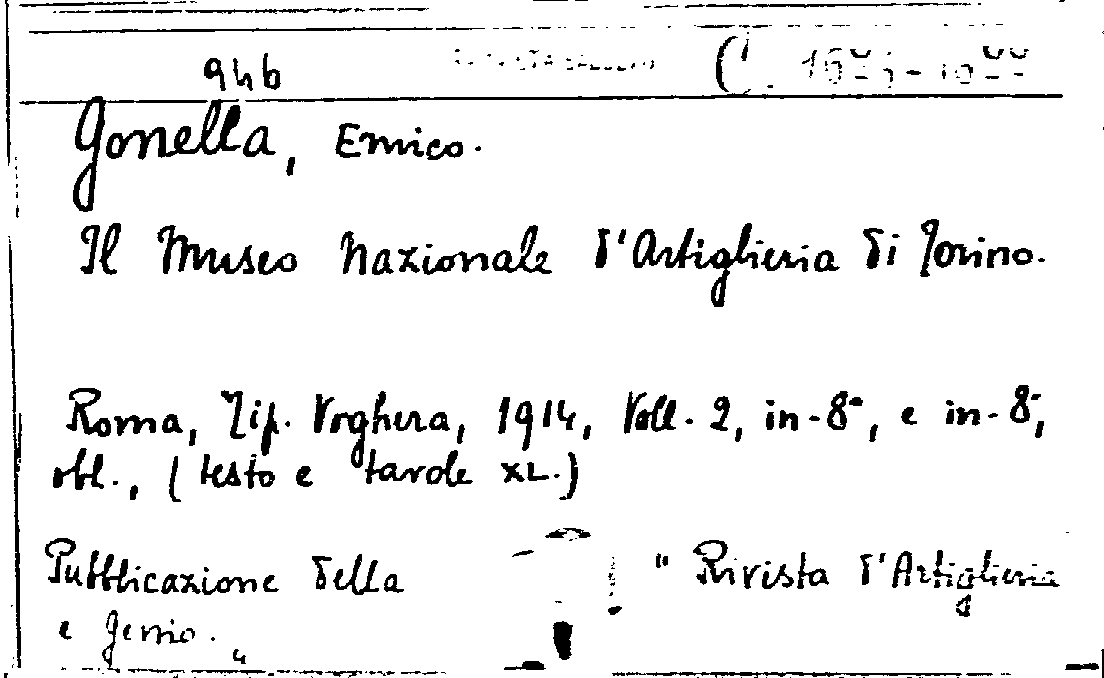 94b
C.
Gonella, Enrico.
Il Museo Nazionale d'Artiglieria di Torino.
Roma, Tip. Voghera, 1914, Voll. 2, in-8°, e in-8°,
obl., (testo e tavole XL.)
Pubblicazione della " Rivista d'Artiglieria
e Genio. "